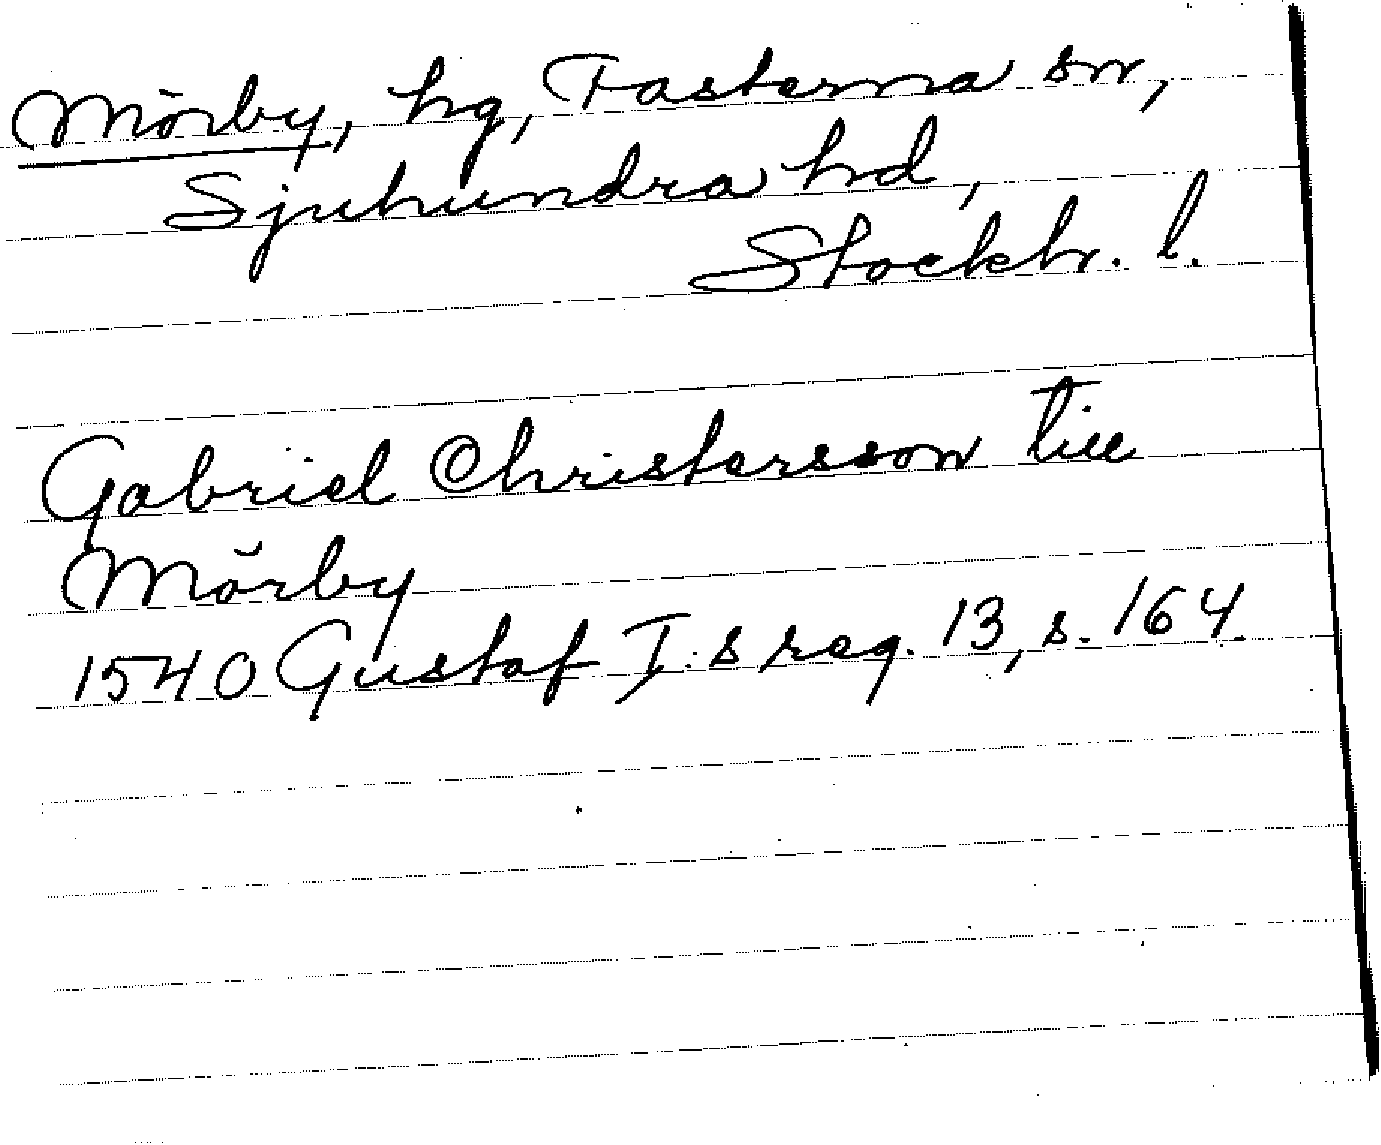 Mörby, hg, Fasterna sn,
Sjuhundra hd,
Stockh. l.
Gabriel Christersson till
Mörby
1540 Gustaf I:s reg. 13, s. 164.